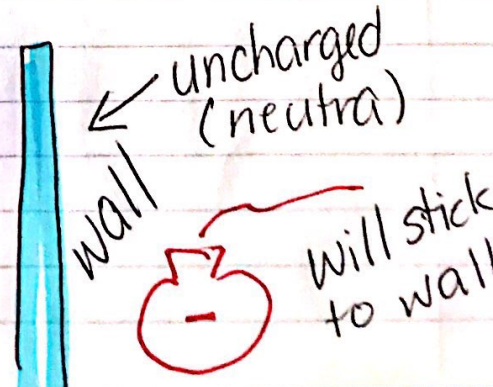 uncharged
(neutra)
wall
will stick
to wall
-